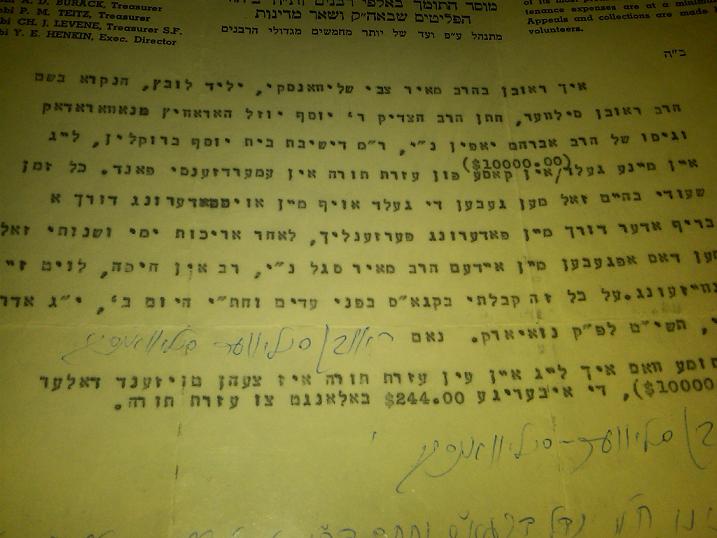 A. D. BURACK, Treasurer
P. M. TEITZ, Treasurer
CH. J. LEVENE, Treasurer S.F.
Y. E. HENKIN, Exec. Director
הפליטים שבאה״ק ושאר מדינות
מתנהל ע״פ ועד של יותר מחמשים מגדולי הרבנים
of its most
tenance expenses are at a minimum
Appeals and collections are made
volunteers.
ב״ה
איך ראובן בהרב מאיר צבי סליוואנסקי, יליד לובץ, הנקרא בשם
הרב ראובן סילווער, חתן הרב הצדיק ר׳ יוסף יוזל האראוויץ מנאוואראדאק
וגיסו של הרב אברהם יאפין נ״י, ר״מ דישיבת בית יוסף ברוקלין, לייג
($10000.00)
איין מיינע געלד/אין קאסע פון עזרת תורה אין עמערדזשענסי פאנד. כל זמן
שעודי בחיים זאל מען געבען די געלד אויף מיין אויפפאדערונג דורך א
בריף אדער דורך מיין פאדערונג פערזענליך, לאחר אריכות ימי ושנותי זאל
דאס אפגעבען מיין איידעם הרב מאיר סגל נ״י, רב אין חיפה, לויט
על כל זה קבלתי בקגא״ס בפני עדים וחת״י היום ב׳, י״ג אדר
תשי״ט לפ״ק נוא־יארק. נאם ראובן סליווער סליוואנסקי
סומע וואס איך לייג איין אין עזרת תורה איז צעהן טויזענד דאלער
($10000), די איבעריגע $244.00 באלאנגט צו עזרת תורה.
סליווער-סליוואנסקי